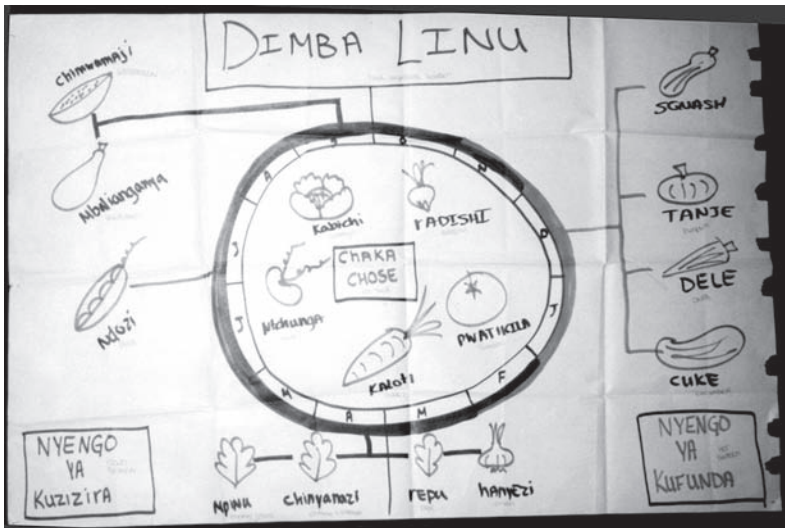 DIMBA LINU
Chimwamaji
Mbaliangama
Ndozi
SQUASH
TANJE
DELE
CUKE
A
S
O
N
D
J
F
M
A
M
J
J
Kabichi
rADISHI
CHAKA
CHOSE
Ntchunga
PWATIKILA
Kaloti
NYENGO
YA
KuziziRA
Mpwu
chinyanazi
repu
hanyezi
NYENGO
YA
KUFUNDA